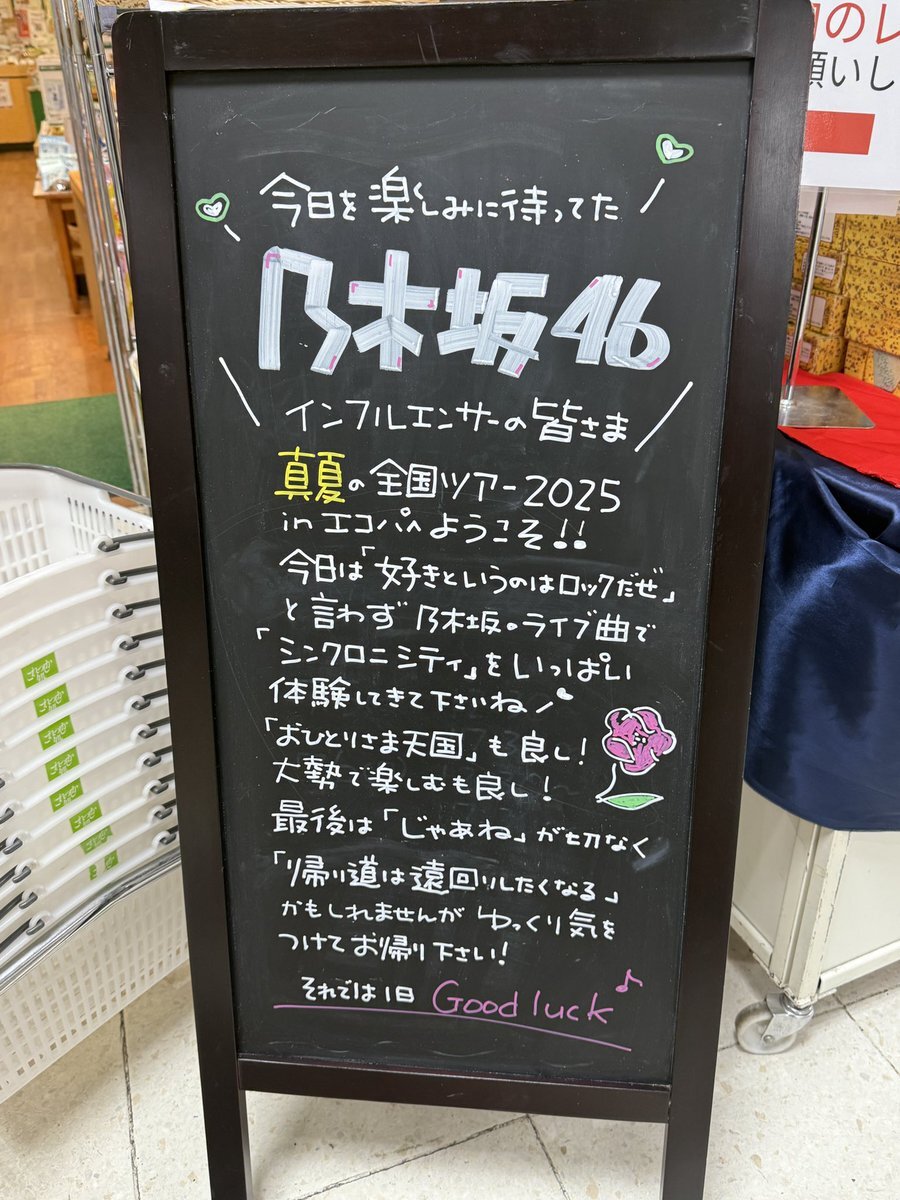 今日を楽しみに待ってた
乃木坂46
インフルエンサーの皆さま
真夏の全国ツアー2025
in エコパへようこそ!!
今日は「好きというのはロックだぜ」
と言わず乃木坂のライブ曲で
「シンクロニシティ」をいっぱい
体験してきて下さいね♪
「おひとりさま天国」も良し!
大勢で楽しむも良し!
最後は「じゃあね」が切なく
「帰り道は遠回りしたくなる」
かもしれませんがゆっくり気を
つけてお帰り下さい!
それでは1日 Good luck♪
のレ
願いし